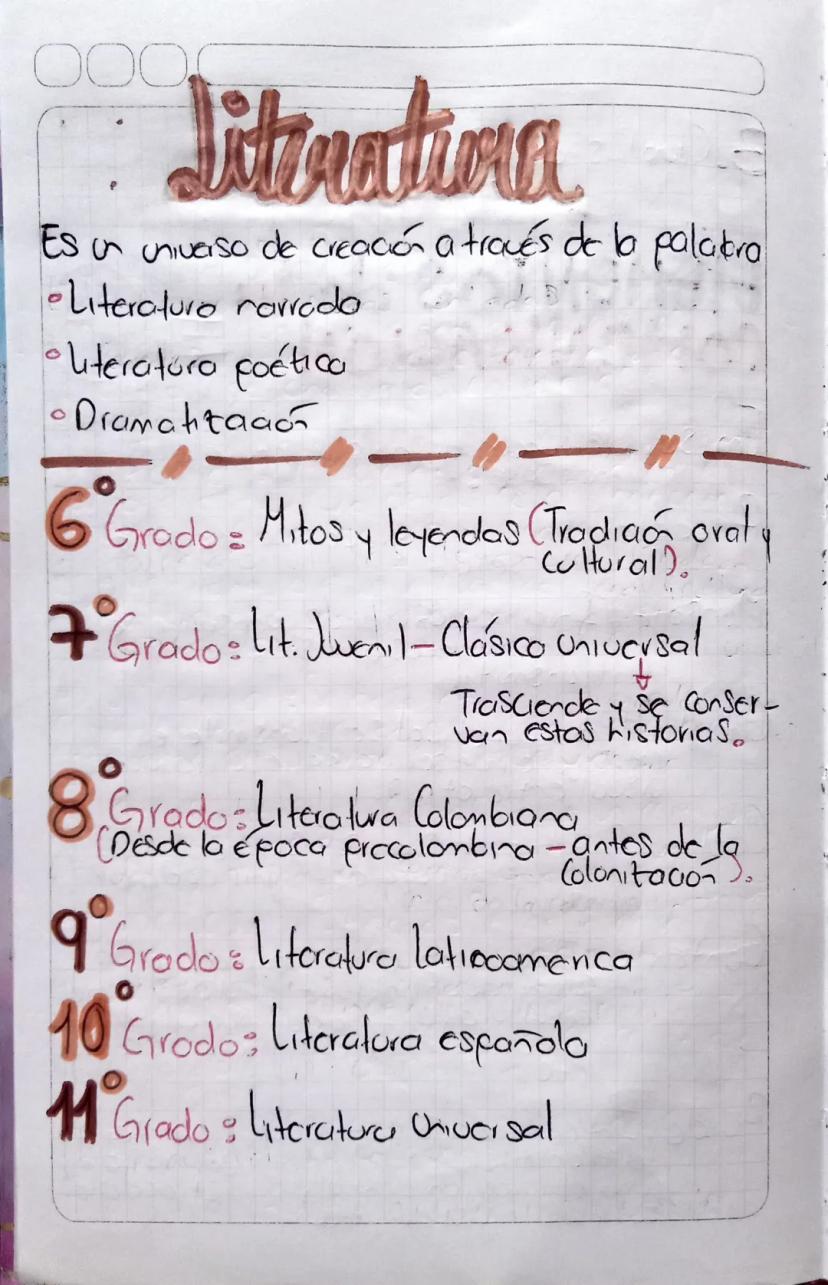 Literatura
Es un universo de creación a través de la palabra
• Literatura narrada
• Literatura poética
• Dramatización
6° Grado: Mitos y leyendas (Tradición oral y
cultural).
7° Grado: Lit. Juvenil - Clásico universal
↓
Trasciende y se conser-
van estas historias.
8° Grado: Literatura Colombiana
(Desde la época precolombina - antes de la
Colonización).
9° Grado: Literatura latinoamerica
10° Grado: Literatura española
11° Grado: Literatura universal